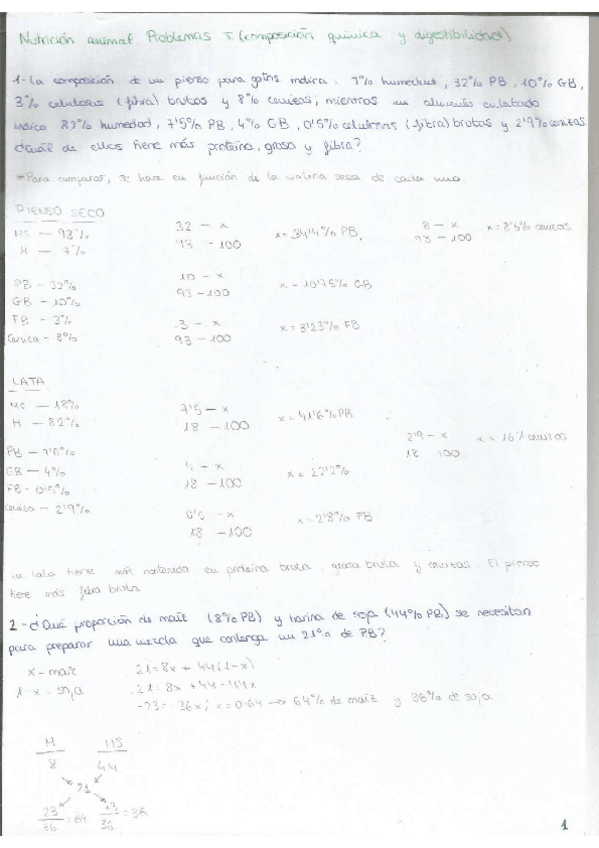 Nutrición animal. Problemas I (composición química y digestibilidad)
1- La composición de un pienso para gatos indica: 7% humedad, 32% PB, 10% GB,
3% celulosas (fibra) brutas y 8% cenizas, mientras un alimento enlatado
indica 82% humedad, 7'5% PB, 4% GB, 0'5% celulosas (fibra) brutas y 2'9% cenizas
¿Cuál de ellos tiene más proteína, grasa y fibra?
*Para comparar, se hace en función de la materia seca de cada uno.
PIENSO SECO
MS — 93%
H — 7%
PB - 32%
GB - 10%
FB - 3%
Ceniza - 8%
32 — x
93 — 100
x = 34'4% PB
8 — x
93 — 100
x = 8'6% cenizas
10 — x
93 — 100
x = 10'75% GB
3 — x
93 — 100
x = 3'23% FB
LATA
MS — 18%
H — 82%
PB — 7'5%
GB — 4%
FB - 0'5%
Ceniza — 2'9%
7'5 — x
18 — 100
x = 41'6% PB
2'9 — x
18 100
x = 16'1 cenizas
4 — x
18 — 100
x = 22'2%
0'5 — x
18 — 100
x = 2'8% FB
La lata tiene más contenido en proteína bruta, grasa bruta y cenizas. El pienso
tiene más fibra bruta
2- ¿Qué proporción de maíz (8% PB) y harina de soja (44% PB) se necesitan
para preparar una mezcla que contenga un 21% de PB?
x - maíz
1-x = soja
21 = 8x + 44(1-x)
21 = 8x + 44 - 44x
-23 = -36x; x = 0'64 → 64% de maíz y 36% de soja
M HS
8 44
21
23/36 = 64 13/36 = 36
1